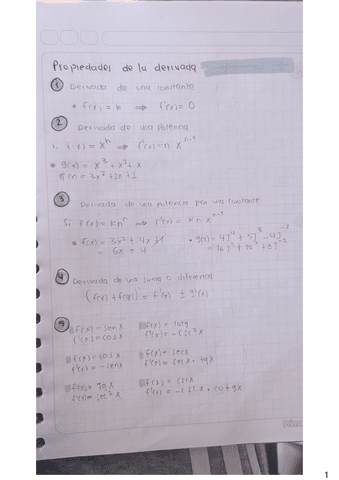 Propiedades de la derivada
1 Derivada de una constante
• f(x) = k ⇒ f'(x) = 0
2 Derivada de una Potencia
f(x) = xⁿ ⇒ f'(x) = n xⁿ⁻¹
• g(x) = x³ + x² + x
g'(x) = 3x² + 2x + 1
3 Derivada de una potencia por una constante
Si f(x) = kxⁿ ⇒ f'(x) = kn xⁿ⁻¹
• f(x) = 3x² + 4x
= 6x + 4
4 Derivada de una suma o diferencia
(f(x) ± f(g))' = f'(x) ± g'(x)
5 f(x) = sen x
f'(x) = cos x
f'(x) = -csc² x
f(x) = cos x
f'(x) = -sen x
f(x) = sec x
f'(x) = sec x • tg x
f(x) = tg x
f'(x) = sec² x
f(x) = csc x
f'(x) = -csc x • cotg x
1